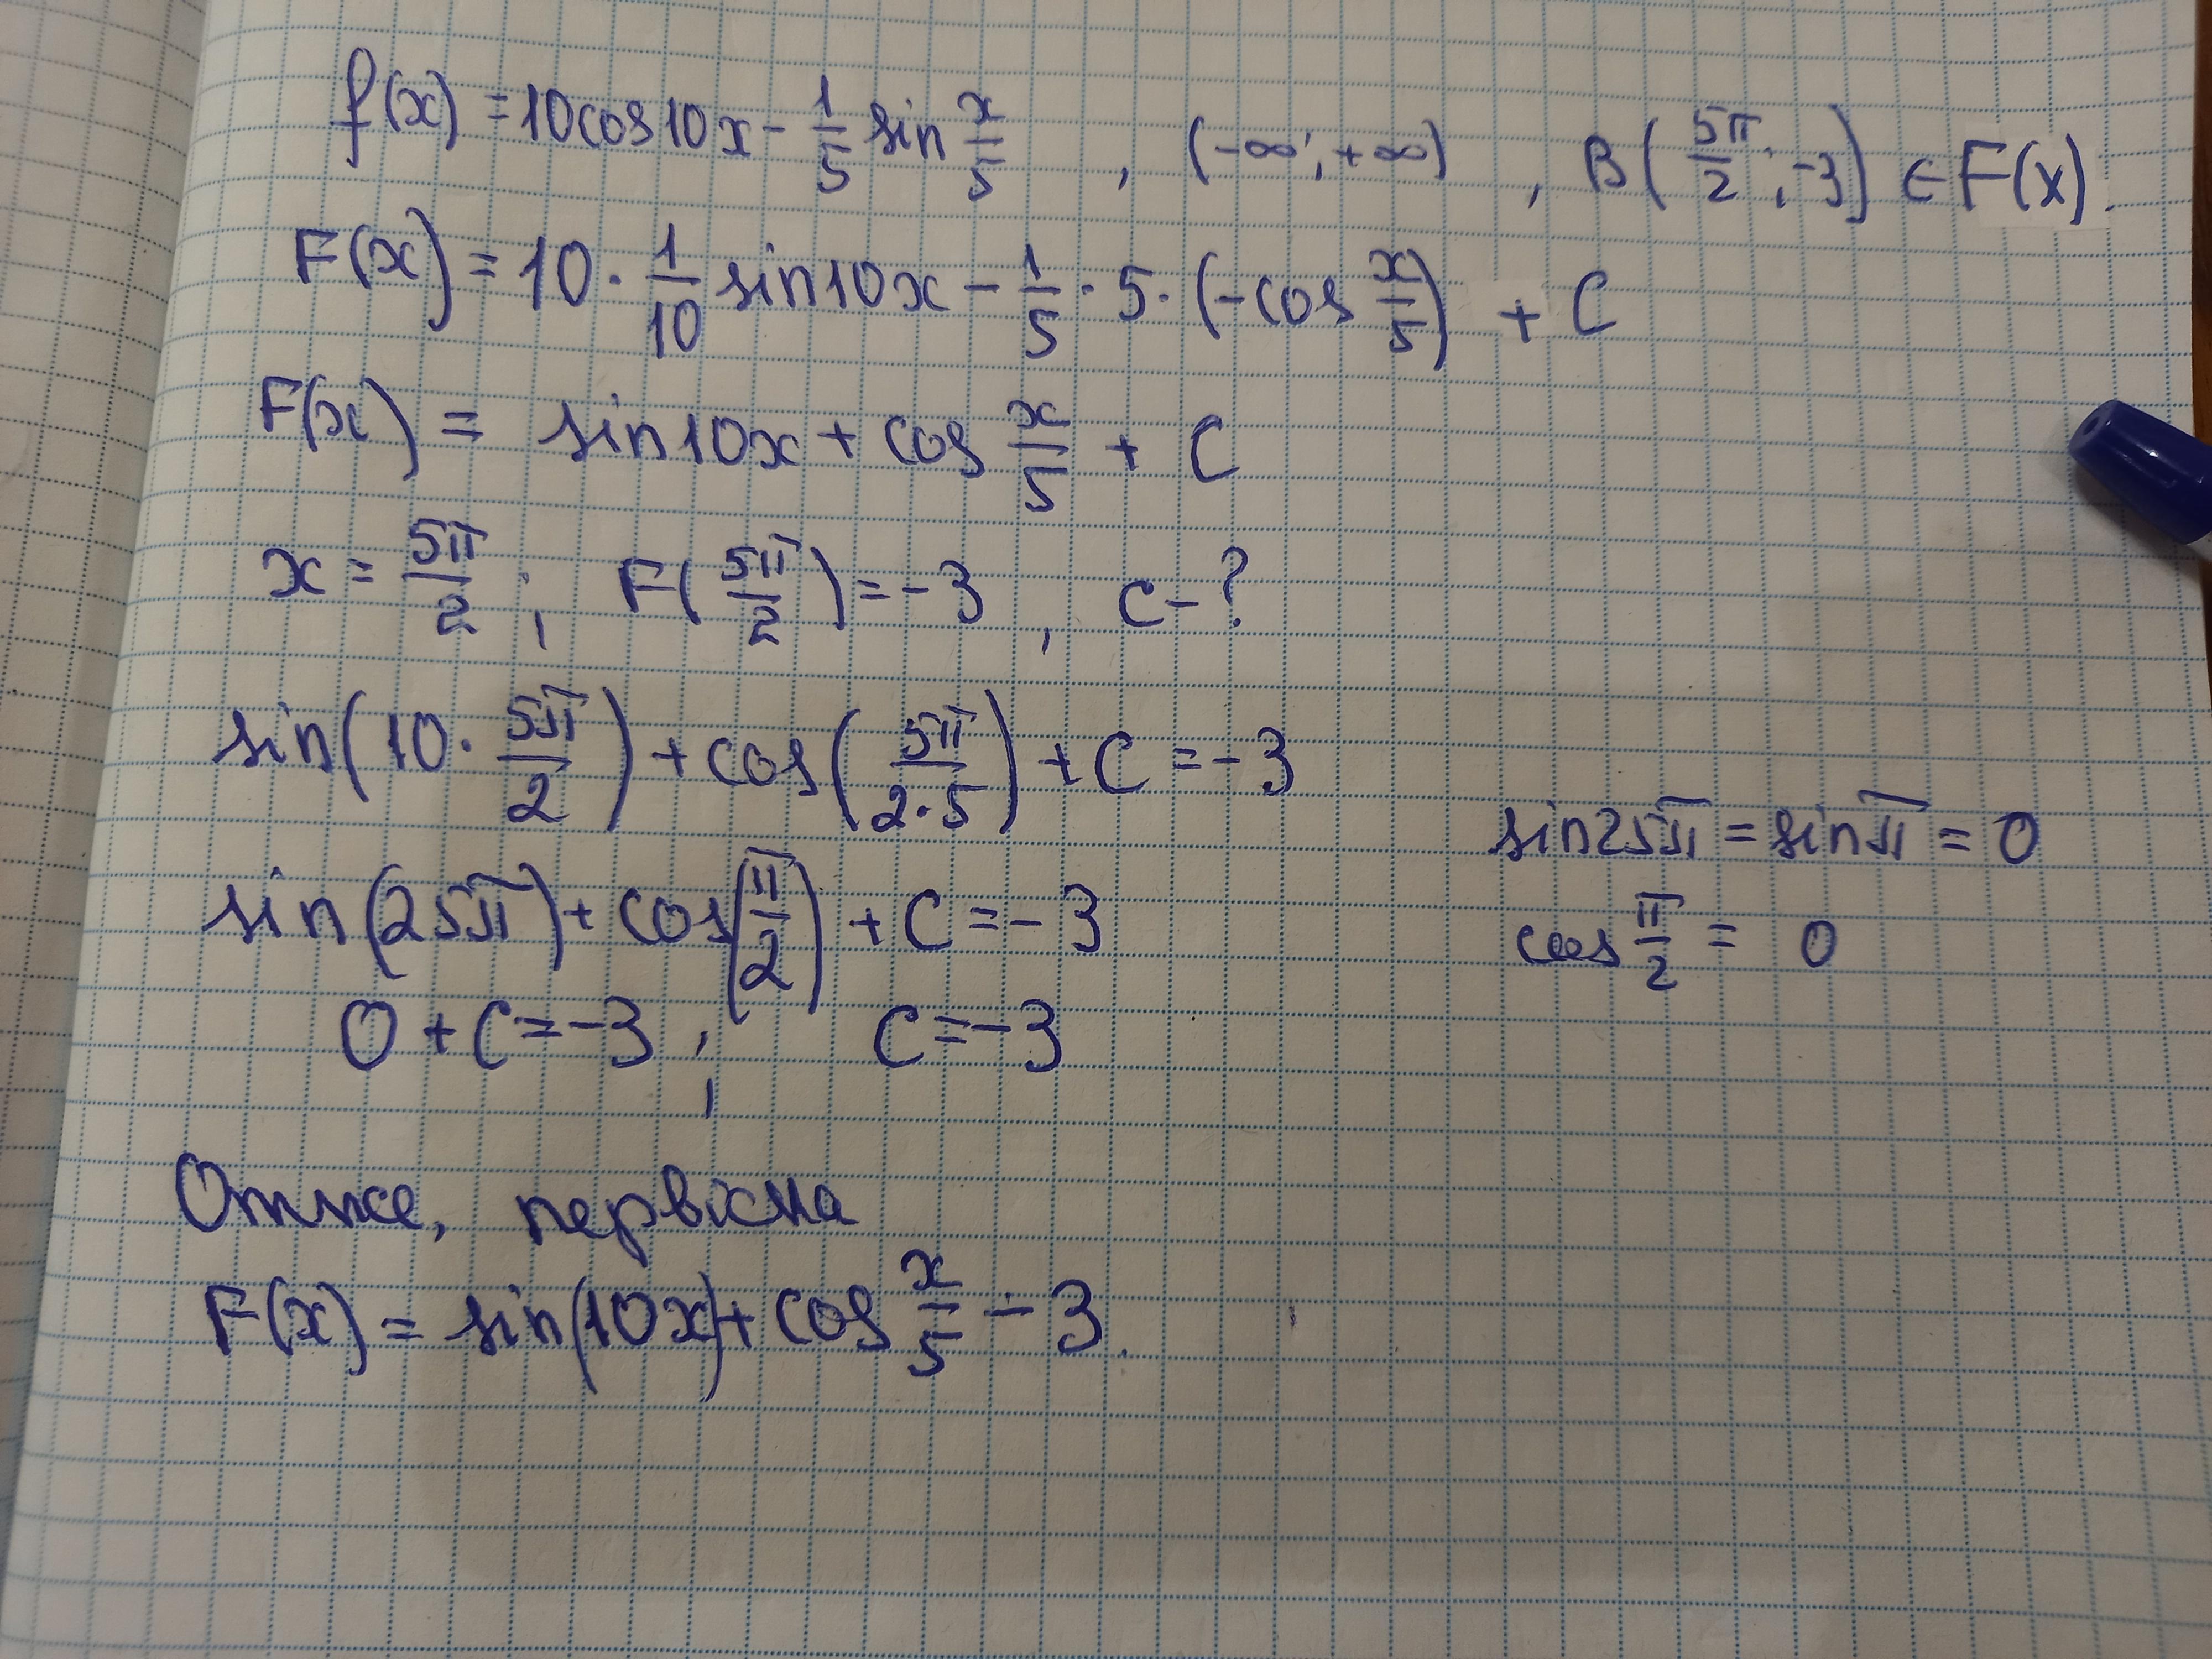 f(x) = 10cos10x - 1/5 sin x/5 , (-∞; +∞) , B(5π/2; -3) ∈ F(x).
F(x) = 10 · 1/10 sin10x - 1/5 · 5 · (-cos x/5) + C
F(x) = sin10x + cos x/5 + C
x = 5π/2 ; F(5π/2) = -3 , C - ?
sin(10 · 5π/2) + cos(5π/(2·5)) + C = -3
sin25π = sinπ = 0
sin(25π) + cos(π/2) + C = -3
cos π/2 = 0
0 + C = -3 ; C = -3
Отже, первісна
F(x) = sin(10x) + cos x/5 - 3.